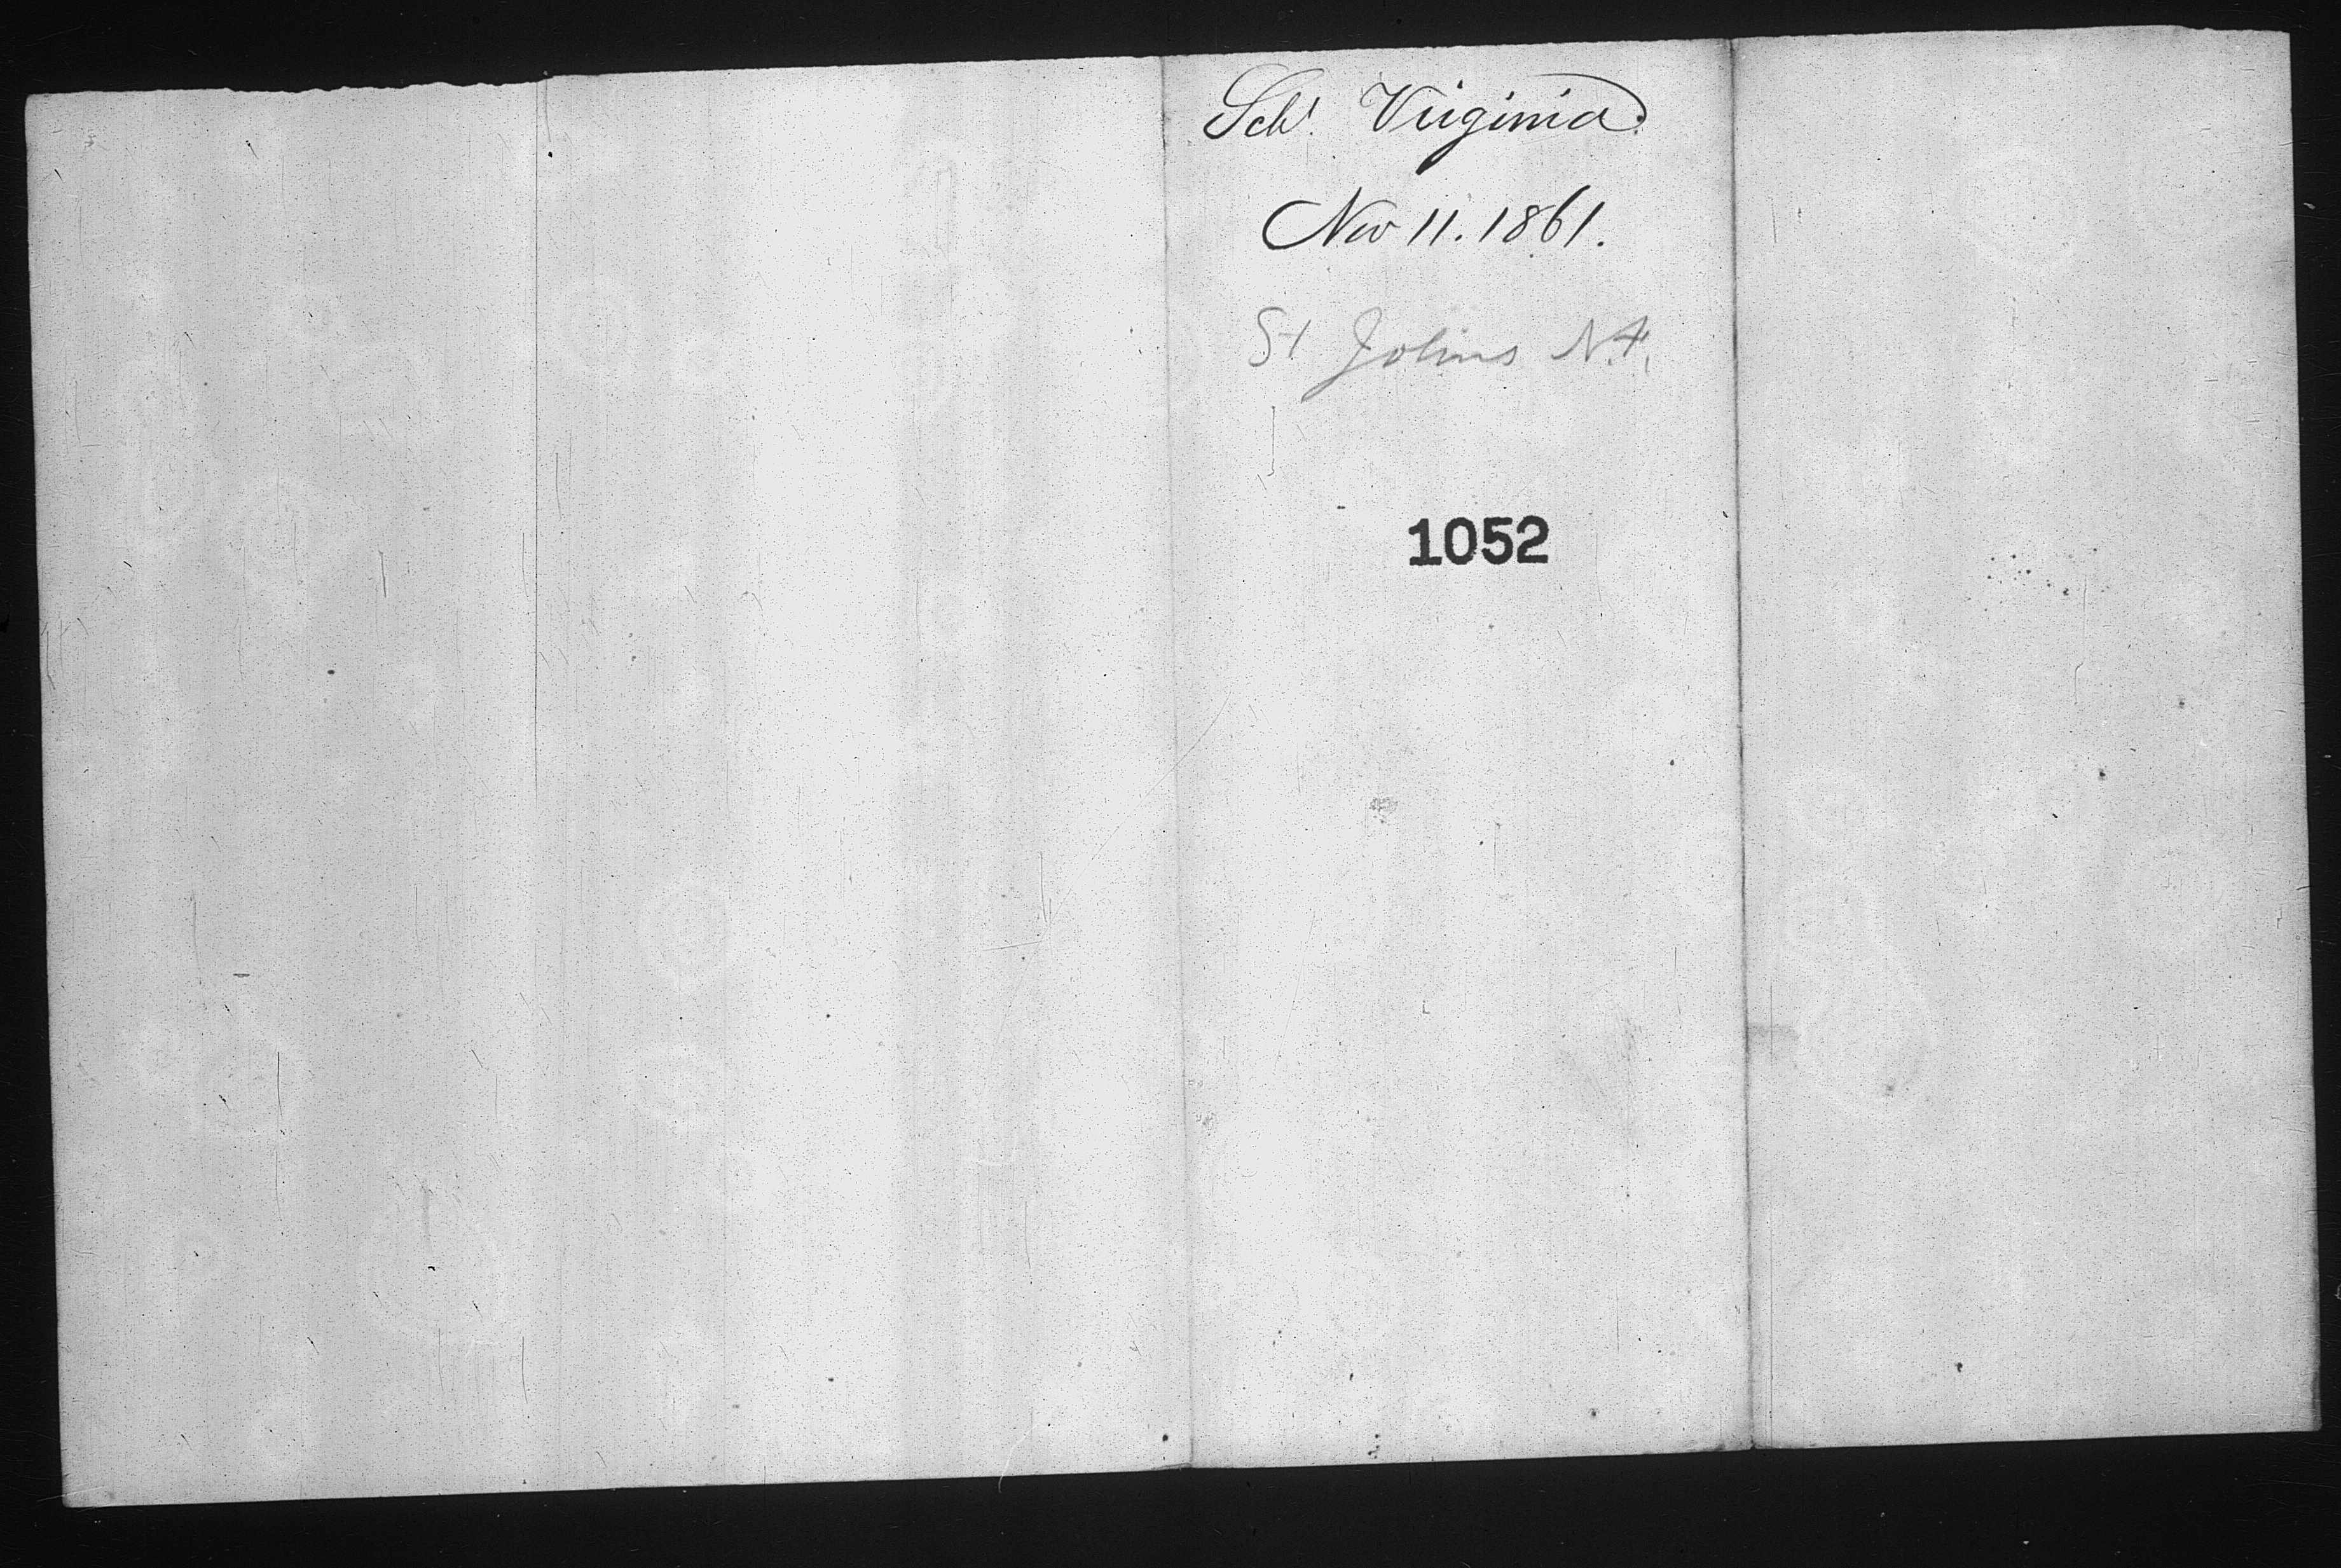 Sch^r. Virginia.
Nov 11. 1861.
St Johns N.F.
1052